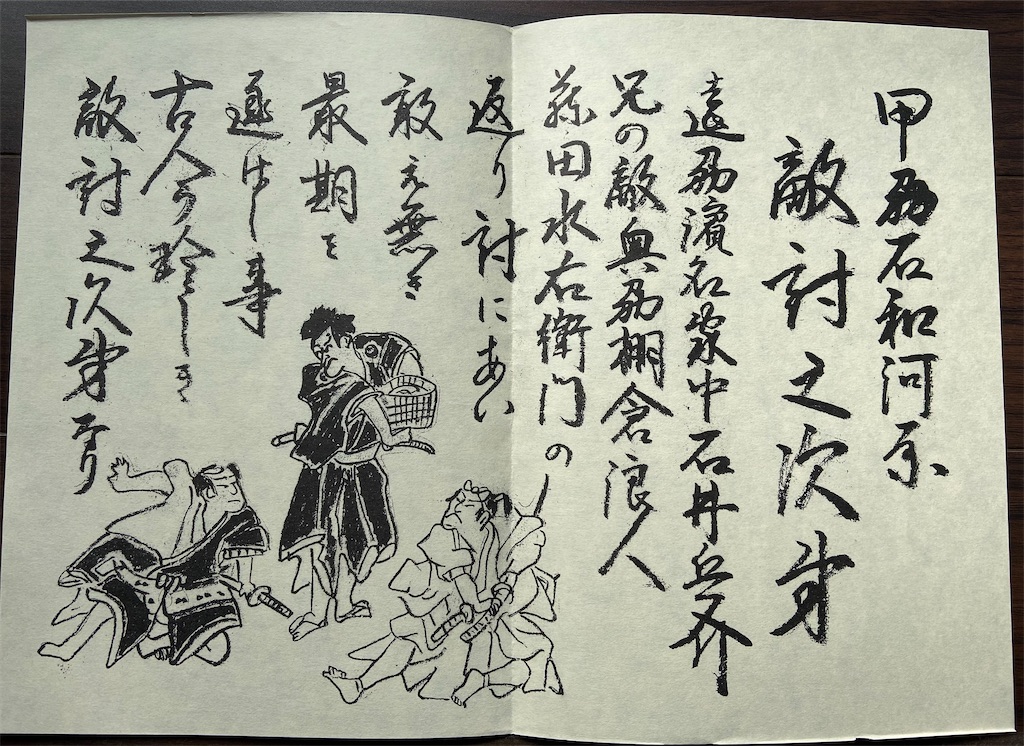 甲刕石和河原
敵討之次第
遠刕濱名家中石井兵介
兄の敵奥刕棚倉浪人
藤田水右衛門の
返り討にあい
敢え無き
最期を
遂げし事
古今の珍しき
敵討之次第なり